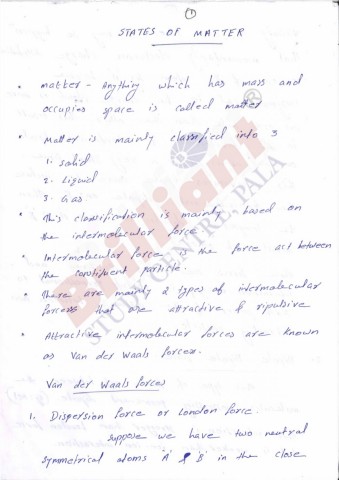 1
STATES OF MATTER
• matter - Anything which has mass and
occupies space is called matter
• Matter is mainly classified into 3
1. solid
2. Liquid
3. Gas
• This classification is mainly based on
the intermolecular force
• Intermolecular force is the force act between
the constituent particle.
• There are mainly 2 types of intermolecular
forces that are attractive & ripulsive
• Attractive intermolecular forces are known
as Van der Waals forces.
Van der Waals forces
1. Dispersion force or London force.
suppose we have two neutral
symmetrical atoms 'A' & 'B' in the close
Brilliant ®
STUDY CENTRE, PALA